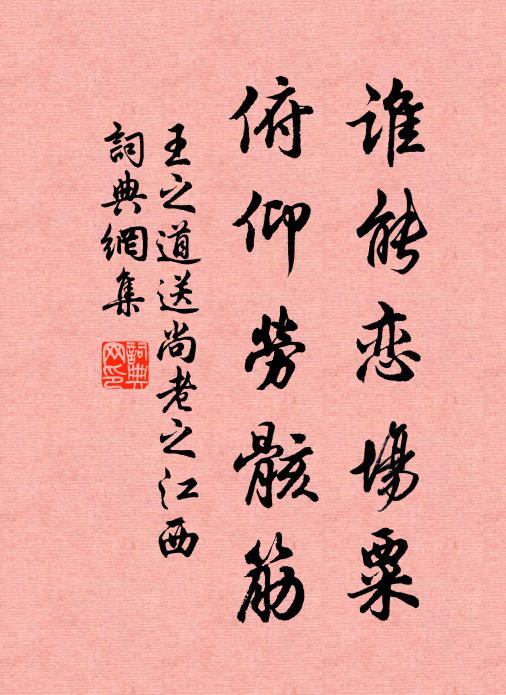 誰能恋場粟
俯仰勞骸筋
王之道送尚老之江西
詞典網集
詞典網印